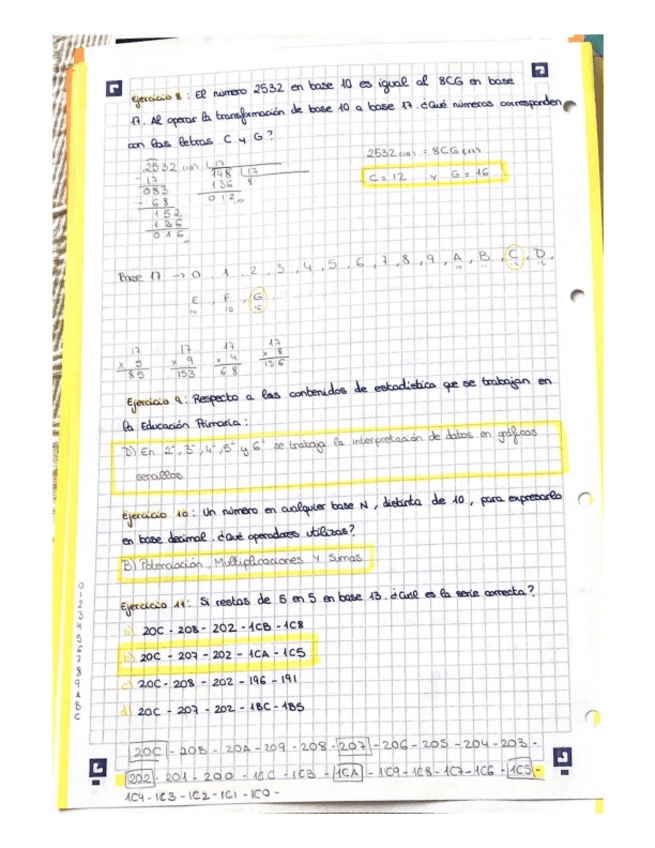 Ejercicio 8: El número 2532 en base 10 es igual al 8CG en base
17. Al operar la transformación de base 10 a base 17. ¿Qué números corresponden
con las letras C y G?
2532 (10) = 8CG (17)
C = 12 y G = 16
2532 (10) | 17
- 17 148 | 17
083 136 8
- 68 012
152
136
016
Base 17 → 0, 1, 2, 3, 4, 5, 6, 7, 8, 9, A, B, C, D,
E, F, G
17 17 17 17
x 5 x 9 x 4 x 8
85 153 68 136
Ejercicio 9: Respecto a los contenidos de estadística que se trabajan en
la Educación Primaria:
D) En 2º, 3º, 4º, 5º y 6º se trabaja la interpretación de datos en gráficos
sencillos
Ejercicio 10: Un número en cualquier base N, distinta de 10, para expresarlo
en base decimal. ¿Qué operadores utilizas?
B) Potenciación, Multiplicaciones y Sumas
Ejercicio 11: Si restas de 5 en 5 en base 13. ¿Cuál es la serie correcta?
a) 20C - 208 - 202 - 1CB - 1C8
b) 20C - 207 - 202 - 1CA - 1C5
c) 20C - 208 - 202 - 196 - 191
d) 20C - 207 - 202 - 1BC - 1B5
0
1
2
3
4
5
6
7
8
9
A
B
C
20C - 20B - 20A - 209 - 208 - 207 - 206 - 205 - 204 - 203 -
202 - 201 - 200 - 1CC - 1CB - 1CA - 1C9 - 1C8 - 1C7 - 1C6 - 1C5 -
1C4 - 1C3 - 1C2 - 1C1 - 1C0 -